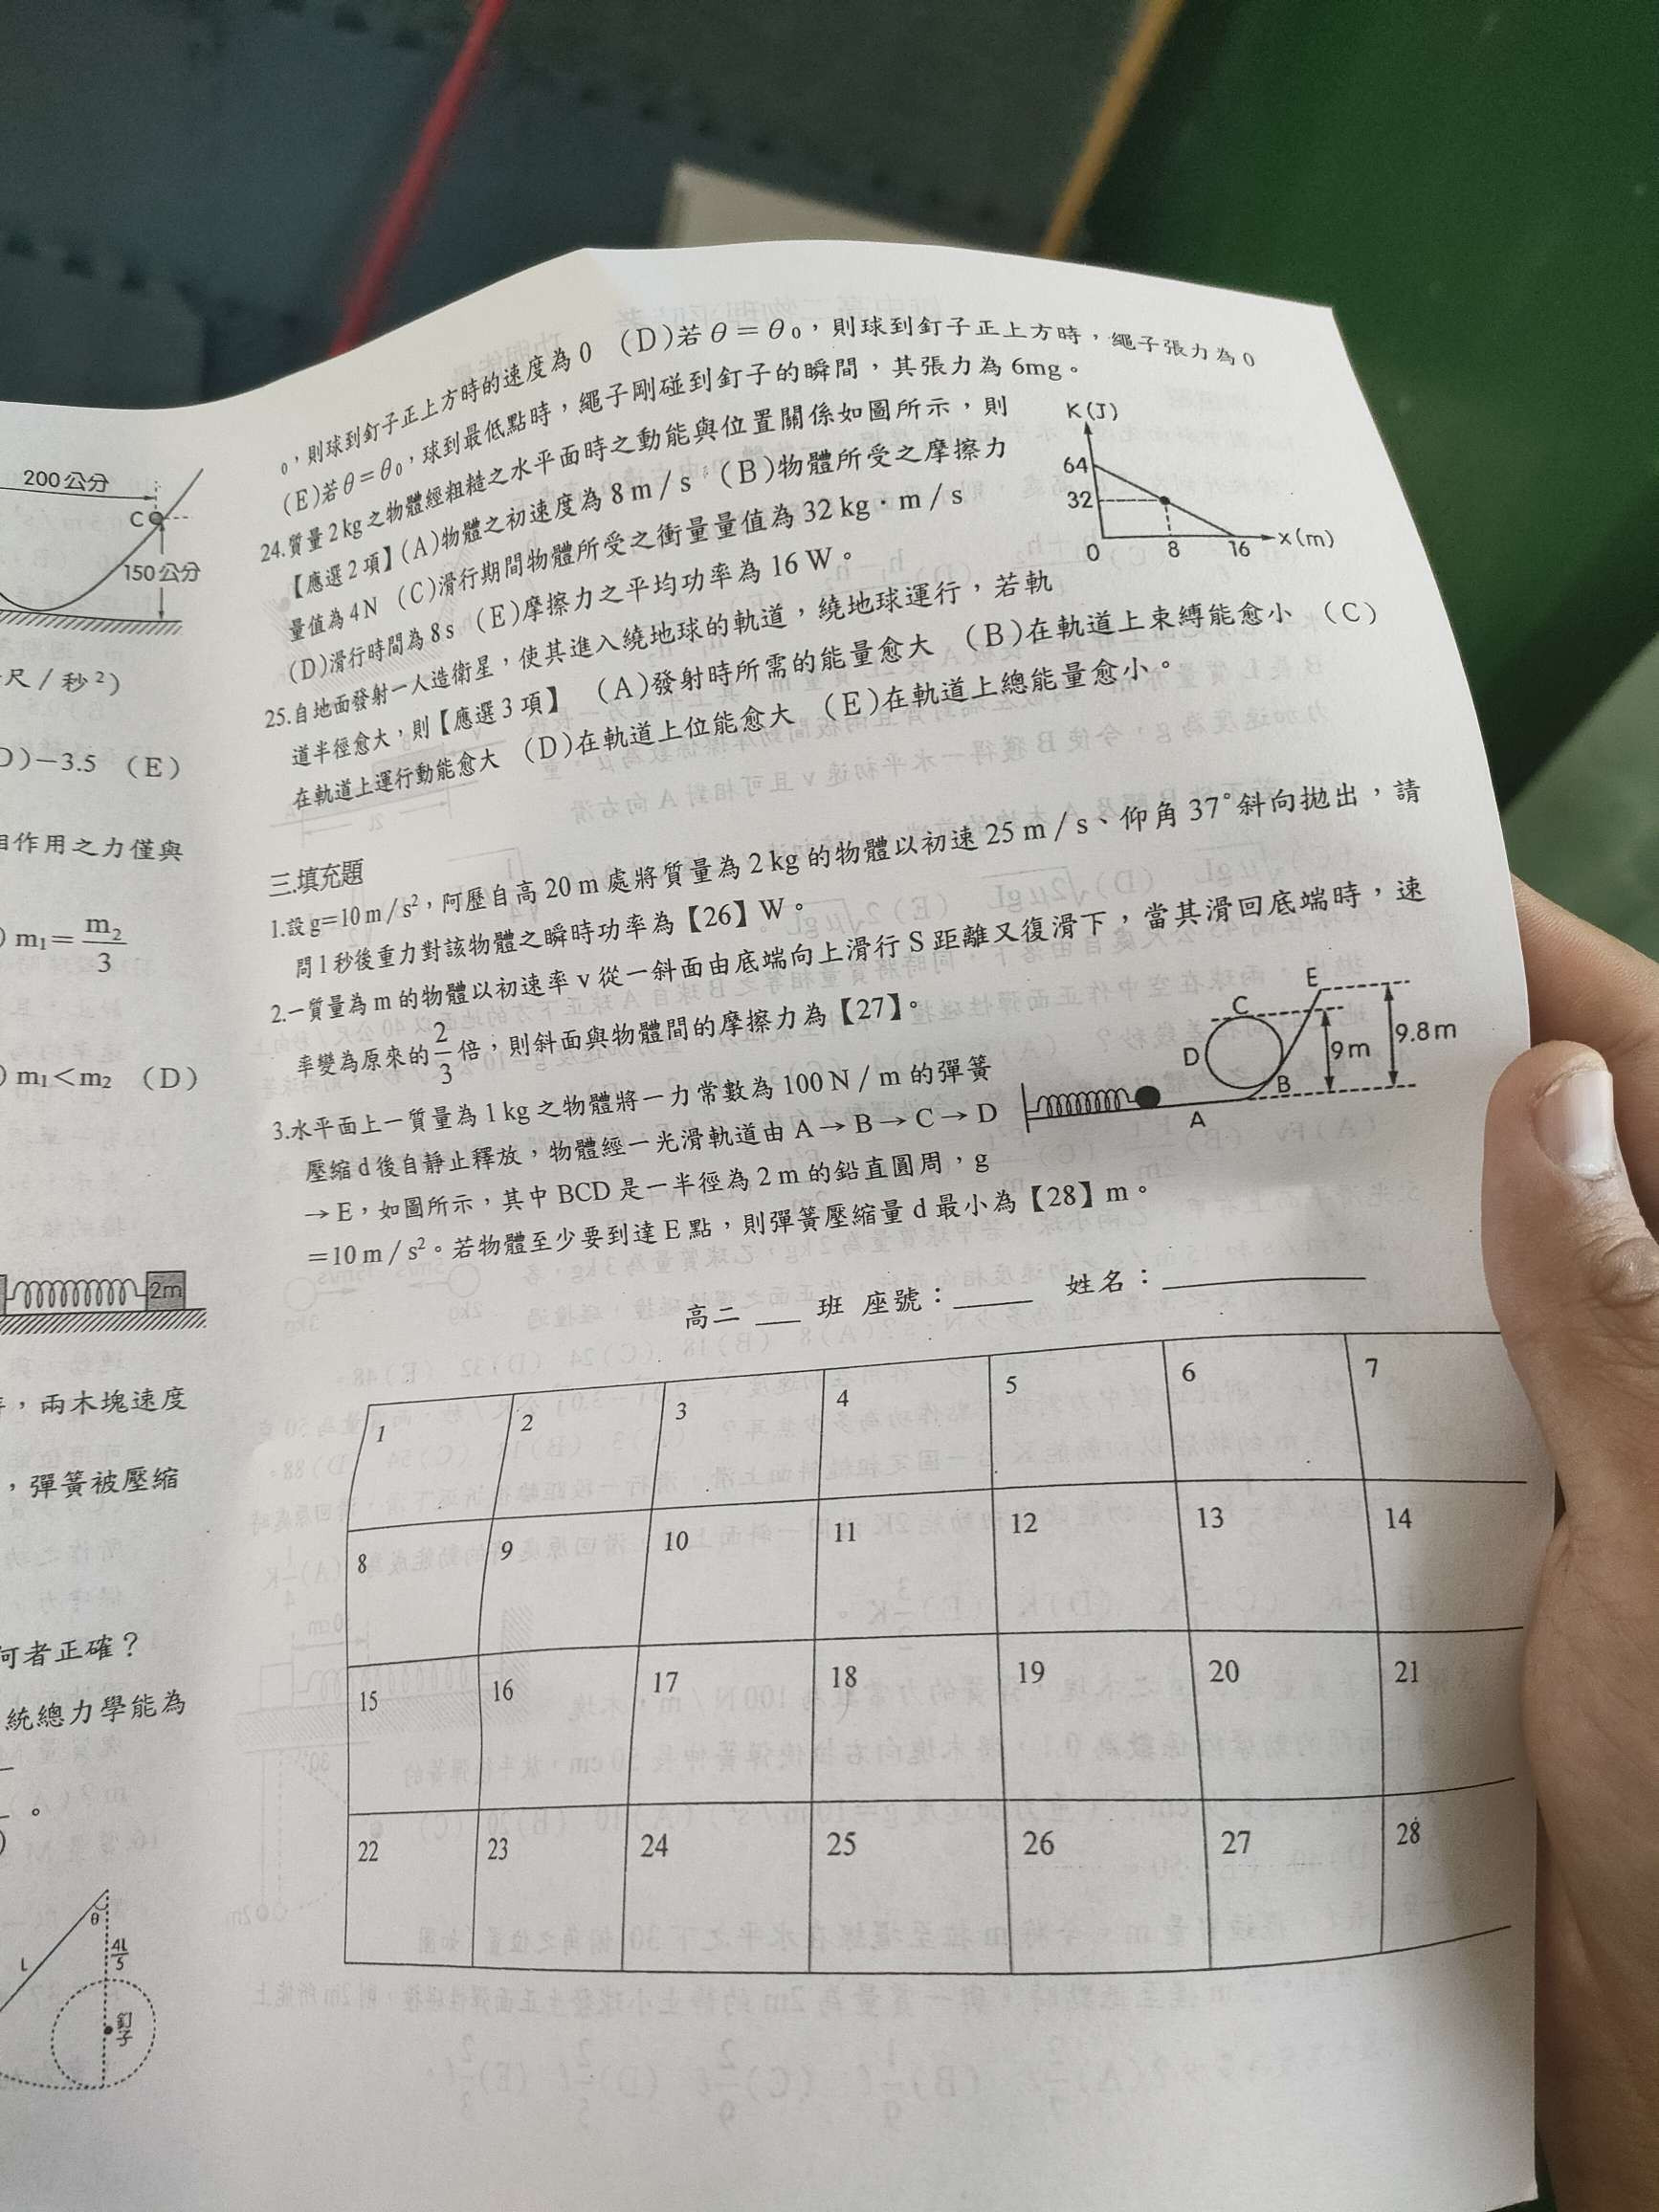 200公分
C
150公分
尺/秒²)
D)−3.5 (E)
相作用之力僅與
) m₁=m₂/3
) m₁<m₂ (D)
2m
,兩木塊速度
,彈簧被壓縮
何者正確?
統總力學能為
。
θ
L
4L/5
釘子
0,則球到釘子正上方時的速度為0 (D)若θ=θ₀,則球到釘子正上方時,繩子張力為0
(E)若θ=θ₀,球到最低點時,繩子剛碰到釘子的瞬間,其張力為6mg。
24.質量2kg之物體經粗糙之水平面時之動能與位置關係如圖所示,則
【應選2項】(A)物體之初速度為8m/s (B)物體所受之摩擦力
量值為4N (C)滑行期間物體所受之衝量量值為32kg·m/s
(D)滑行時間為8s (E)摩擦力之平均功率為16W。
K(J)
64
32
0 8 16 x(m)
25.自地面發射一人造衛星,使其進入繞地球的軌道,繞地球運行,若軌
道半徑愈大,則【應選3項】 (A)發射時所需的能量愈大 (B)在軌道上束縛能愈小 (C)
在軌道上運行動能愈大 (D)在軌道上位能愈大 (E)在軌道上總能量愈小。
三.填充題
1.設g=10m/s²,阿歷自高20m處將質量為2kg的物體以初速25m/s、仰角37°斜向拋出,請
問1秒後重力對該物體之瞬時功率為【26】W。
2.一質量為m的物體以初速率v從一斜面由底端向上滑行S距離又復滑下,當其滑回底端時,速
率變為原來的2/3倍,則斜面與物體間的摩擦力為【27】。
3.水平面上一質量為1kg之物體將一力常數為100N/m的彈簧
壓縮d後自靜止釋放,物體經一光滑軌道由A→B→C→D
→E,如圖所示,其中BCD是一半徑為2m的鉛直圓周,g
=10m/s²。若物體至少要到達E點,則彈簧壓縮量d最小為【28】m。
E
C
D
9m
9.8m
B
A
高二 ___ 班 座號:_____ 姓名:____________
1 2 3 4 5 6 7
8 9 10 11 12 13 14
15 16 17 18 19 20 21
22 23 24 25 26 27 28